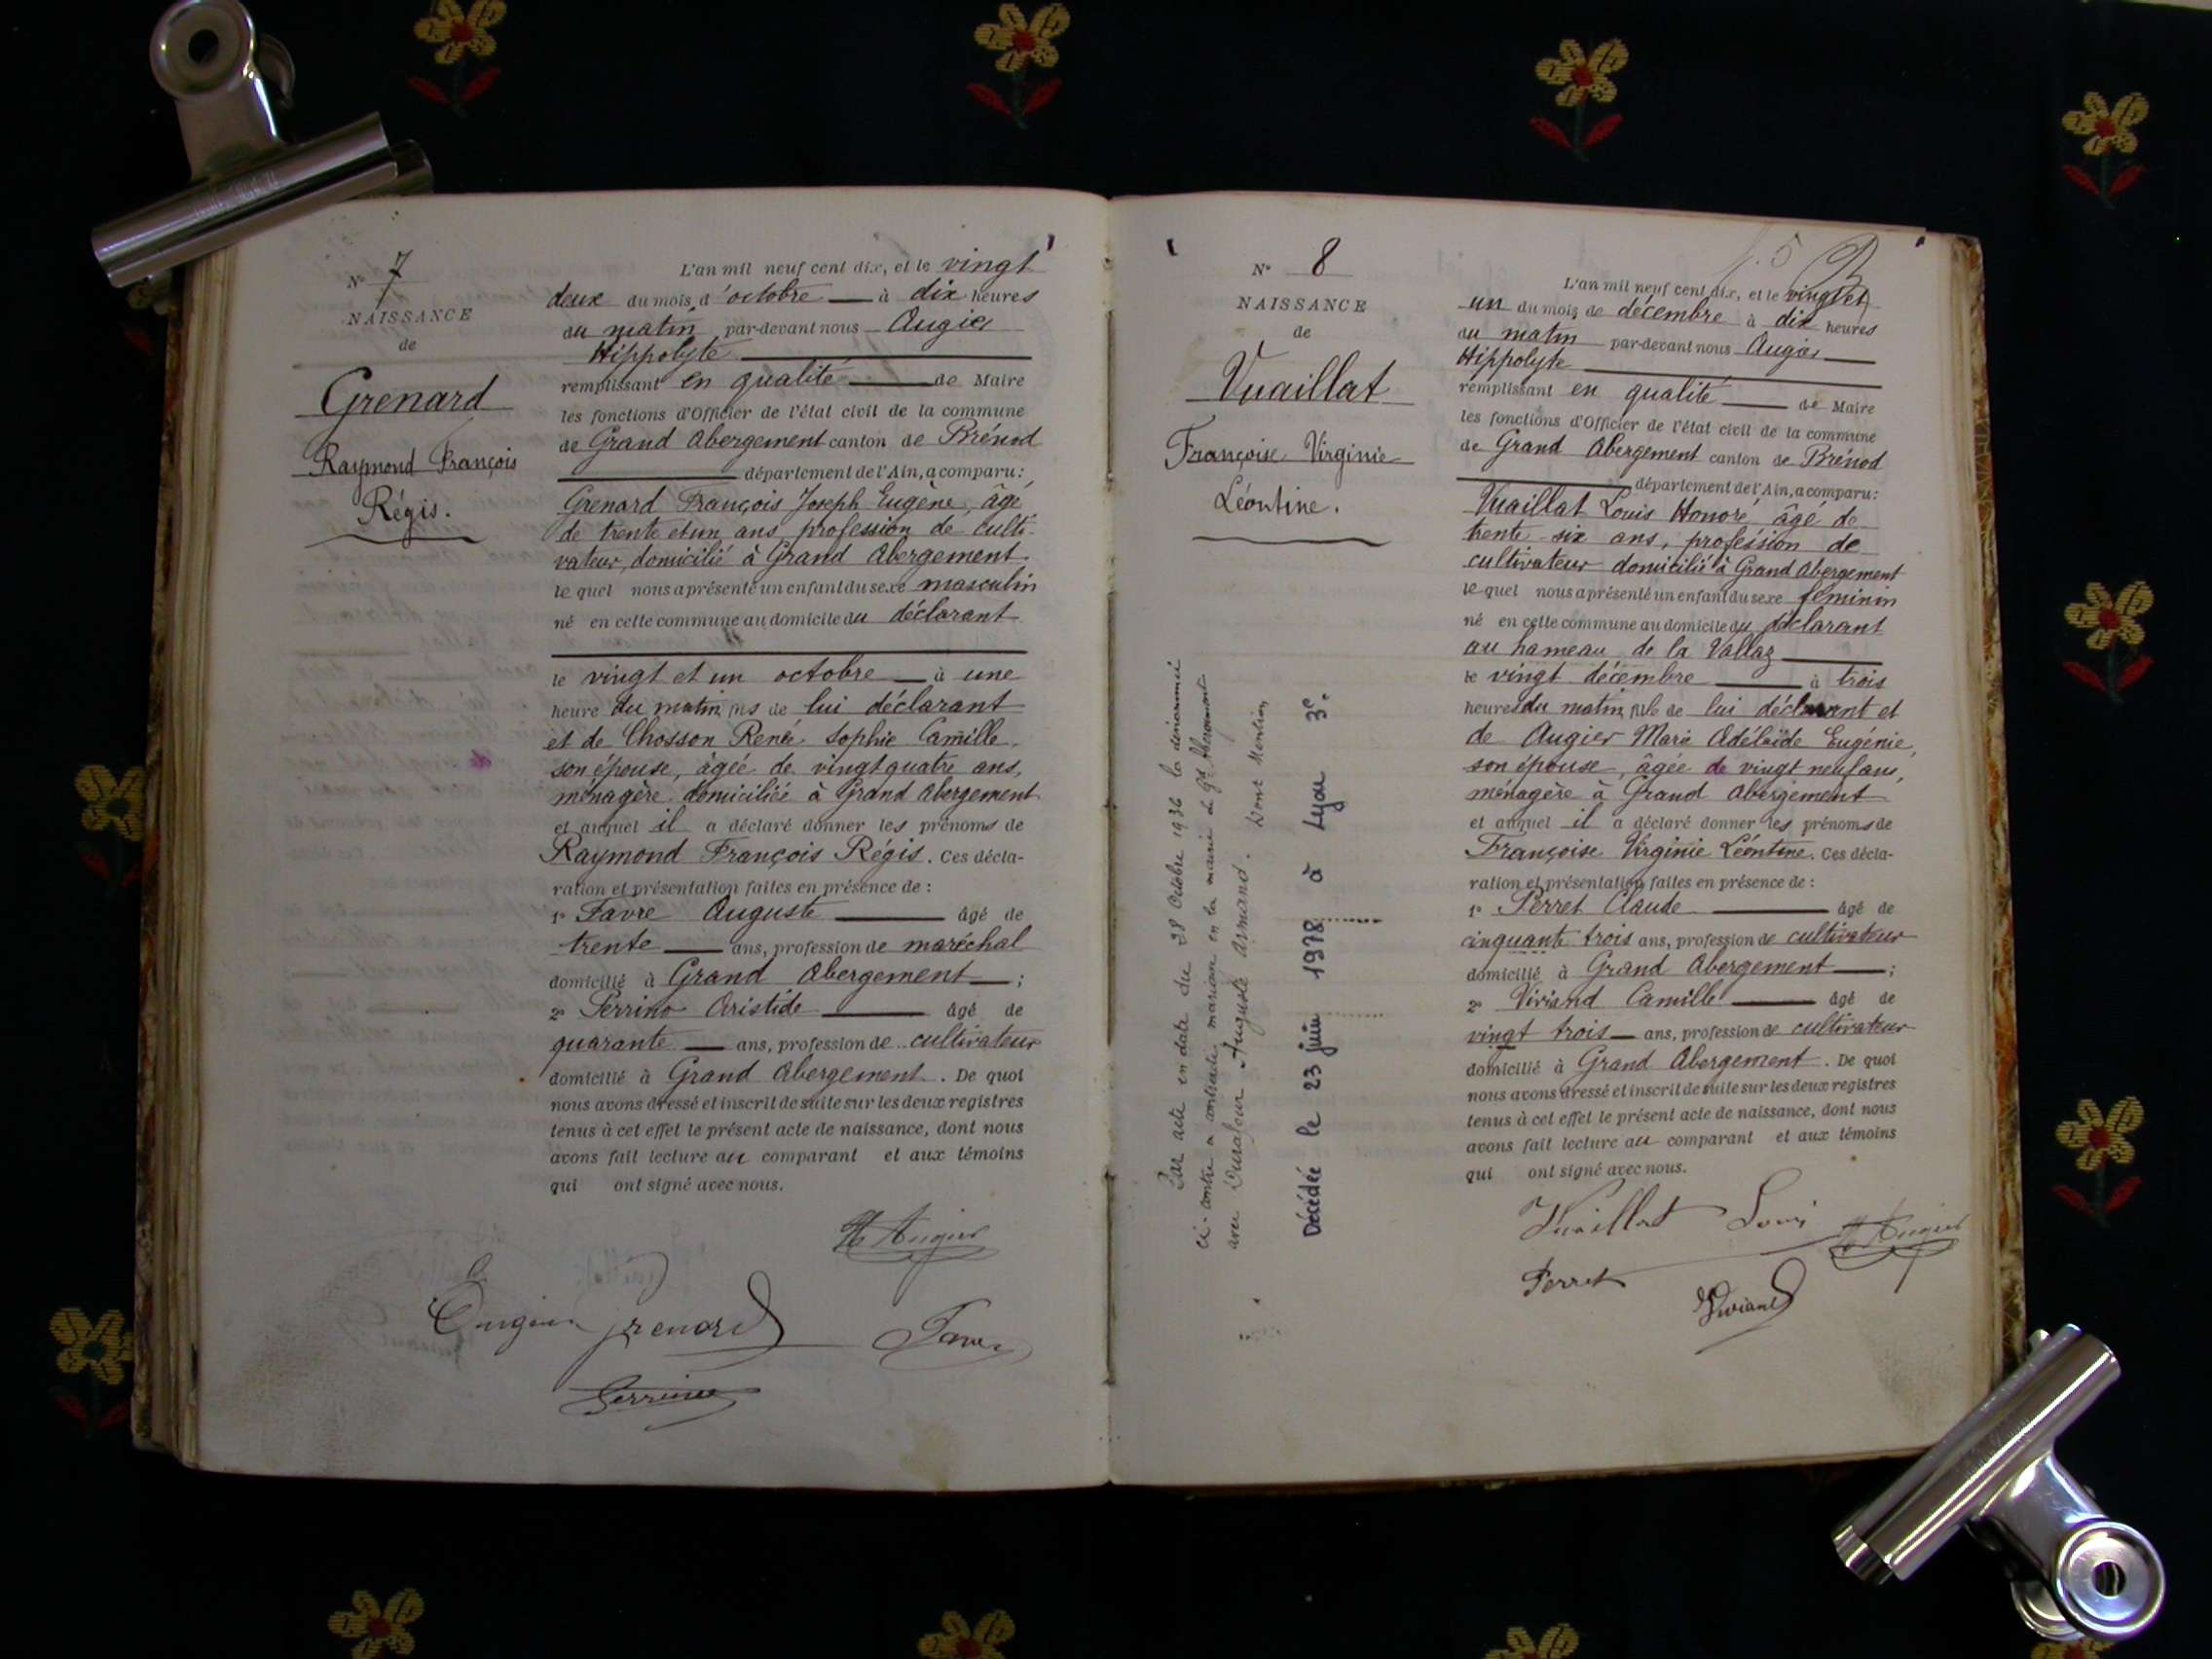 N° 7
NAISSANCE
de
Grenard
Raymond François
Régis.
L'an mil neuf cent dix, et le vingt
deux du mois d'octobre à dix heures
du matin par-devant nous Augier
Hippolyte
remplissant en qualité de Maire
les fonctions d'Officier de l'état civil de la commune
de Grand Abergement canton de Brénod
département de l'Ain, a comparu:
Grenard François Joseph Eugène, âgé
de trente et un ans, profession de culti-
vateur, domicilié à Grand Abergement
lequel nous a présenté un enfant du sexe masculin
né en cette commune au domicile du déclarant
le vingt et un octobre à une
heure du matin, fils de lui déclarant
et de Chosson Renée Sophie Camille
son épouse, âgée de vingt quatre ans,
ménagère domiciliée à Grand Abergement
et auquel il a déclaré donner les prénoms de
Raymond François Régis. Ces décla-
ration et présentation faites en présence de:
1° Favre Auguste âgé de
trente ans, profession de maréchal
domicilié à Grand Abergement;
2° Perrino Aristide âgé de
quarante ans, profession de cultivateur
domicilié à Grand Abergement. De quoi
nous avons dressé et inscrit de suite sur les deux registres
tenus à cet effet le présent acte de naissance, dont nous
avons fait lecture au comparant et aux témoins
qui ont signé avec nous.
H Augier
Eugène Grenard Favre
Perrino
N° 8
NAISSANCE
de
Vuaillat
Françoise Virginie
Léontine.
Par acte en date du 28 Octobre 1936 la dénommée
ci-contre a contracté mariage en la mairie de Gd Abergement
avec Auguste Armand. Dont Mention
Décédée le 23 juin 1978 à Lyon 3e.
L'an mil neuf cent dix, et le vingt et
un du mois de décembre à dix heures
du matin par-devant nous Augier
Hippolyte
remplissant en qualité de Maire
les fonctions d'Officier de l'état civil de la commune
de Grand Abergement canton de Brénod
département de l'Ain, a comparu:
Vuaillat Louis Honoré âgé de
trente six ans, profession de
cultivateur domicilié à Grand Abergement
lequel nous a présenté un enfant du sexe féminin
né en cette commune au domicile du déclarant
au hameau de la Vallaz
le vingt décembre à trois
heures du matin, fille de lui déclarant et
de Augier Marie Adélaïde Eugénie,
son épouse, âgée de vingt neuf ans,
ménagère à Grand Abergement
et auquel il a déclaré donner les prénoms de
Françoise Virginie Léontine. Ces décla-
ration et présentation faites en présence de:
1° Perret Claude âgé de
cinquante trois ans, profession de cultivateur
domicilié à Grand Abergement;
2° Viviand Camille âgé de
vingt trois ans, profession de cultivateur
domicilié à Grand Abergement. De quoi
nous avons dressé et inscrit de suite sur les deux registres
tenus à cet effet le présent acte de naissance, dont nous
avons fait lecture au comparant et aux témoins
qui ont signé avec nous.
Vuaillat Louis H Augier
Perret
Viviand